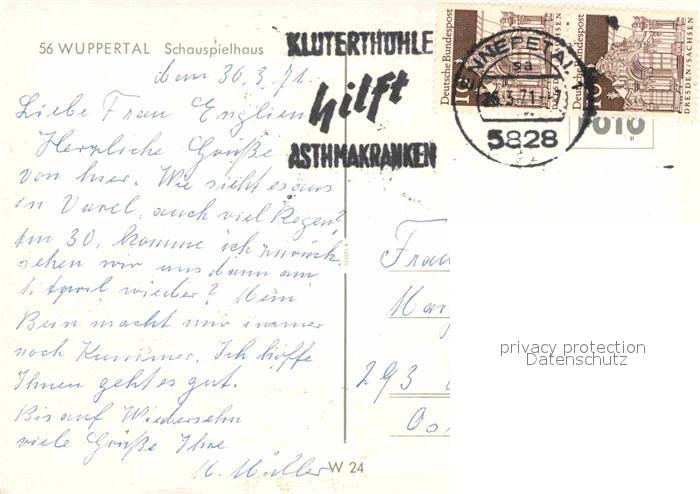 56 WUPPERTAL Schauspielhaus
KLUTERTHÖHLE
hilft
ASTHMAKRANKEN
ENNEPETAL
sa
26.3.71
5828
Deutsche Bundespost
10
DRESDEN/SACHSEN
Deutsche Bundespost
DRESDEN/SACHSEN
den 26.3.71
Liebe Frau Englien
Herzliche Grüße
von hier. Wie sieht es aus
in Varel, auch viel Regen?
Am 30. komme ich zurück.
sehen wir uns dann am
1. April wieder? Mein
Bein macht mir immer
noch Kummer. Ich hoffe
Ihnen geht es gut.
Bis auf Wiedersehn
viele Grüße Ihre
M. Müller
W 24
Frau
293
privacy protection
Datenschutz